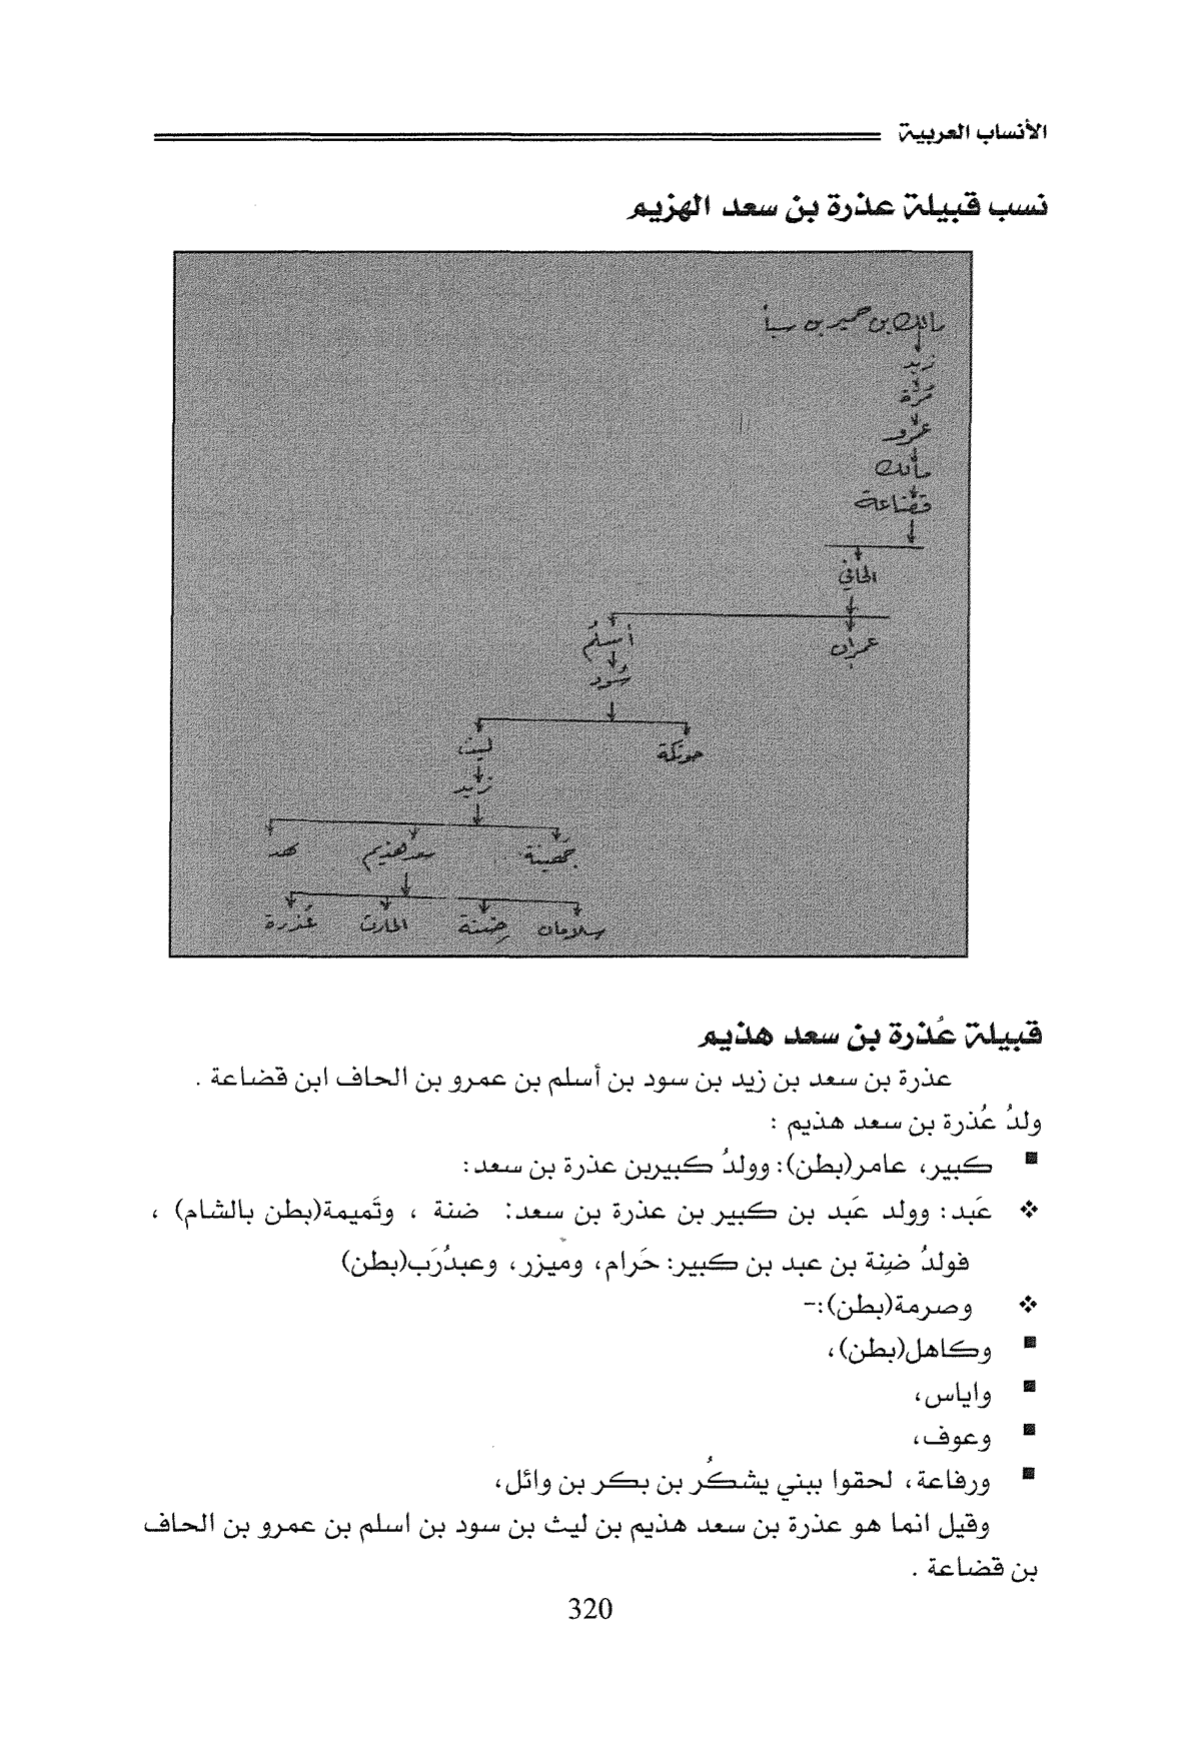 الأنساب العربية
نسب قبيلة عذرة بن سعد الهزيم
مالك بن حمير بن سبأ
زيد
مُرّة
عمرو
مالك
قضاعة
الحافي
عمران
أسلُم
سُود
حوتكة
ليث
زيد
جُهينة
سعد هذيم
نهد
سلامان
ضِنة
الحارث
عُذرة
قبيلة عُذرة بن سعد هذيم
عذرة بن سعد بن زيد بن سود بن أسلم بن عمرو بن الحاف ابن قضاعة .
ولدُ عُذرة بن سعد هذيم :
■ كبير، عامر(بطن): وولدُ كبيربن عذرة بن سعد:
❖ عَبد: وولد عَبد بن كبير بن عذرة بن سعد: ضنة ، وتَميمة(بطن بالشام) ،
فولدُ ضِنة بن عبد بن كبير: حَرام، وميزر، وعبدُرَب(بطن)
❖ وصرمة(بطن):-
■ وكاهل(بطن)،
■ واياس،
■ وعوف،
■ ورفاعة، لحقوا ببني يشكُر بن بكر بن وائل،
وقيل انما هو عذرة بن سعد هذيم بن ليث بن سود بن اسلم بن عمرو بن الحاف
بن قضاعة .
320